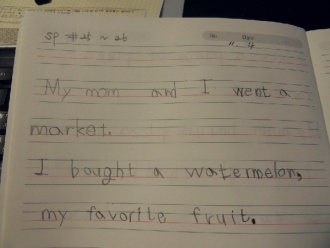 SP #25 ~ 26
No. Date
11. 4
My mom and I went a
market.
I bought a watermelon,
my favorite fruit.